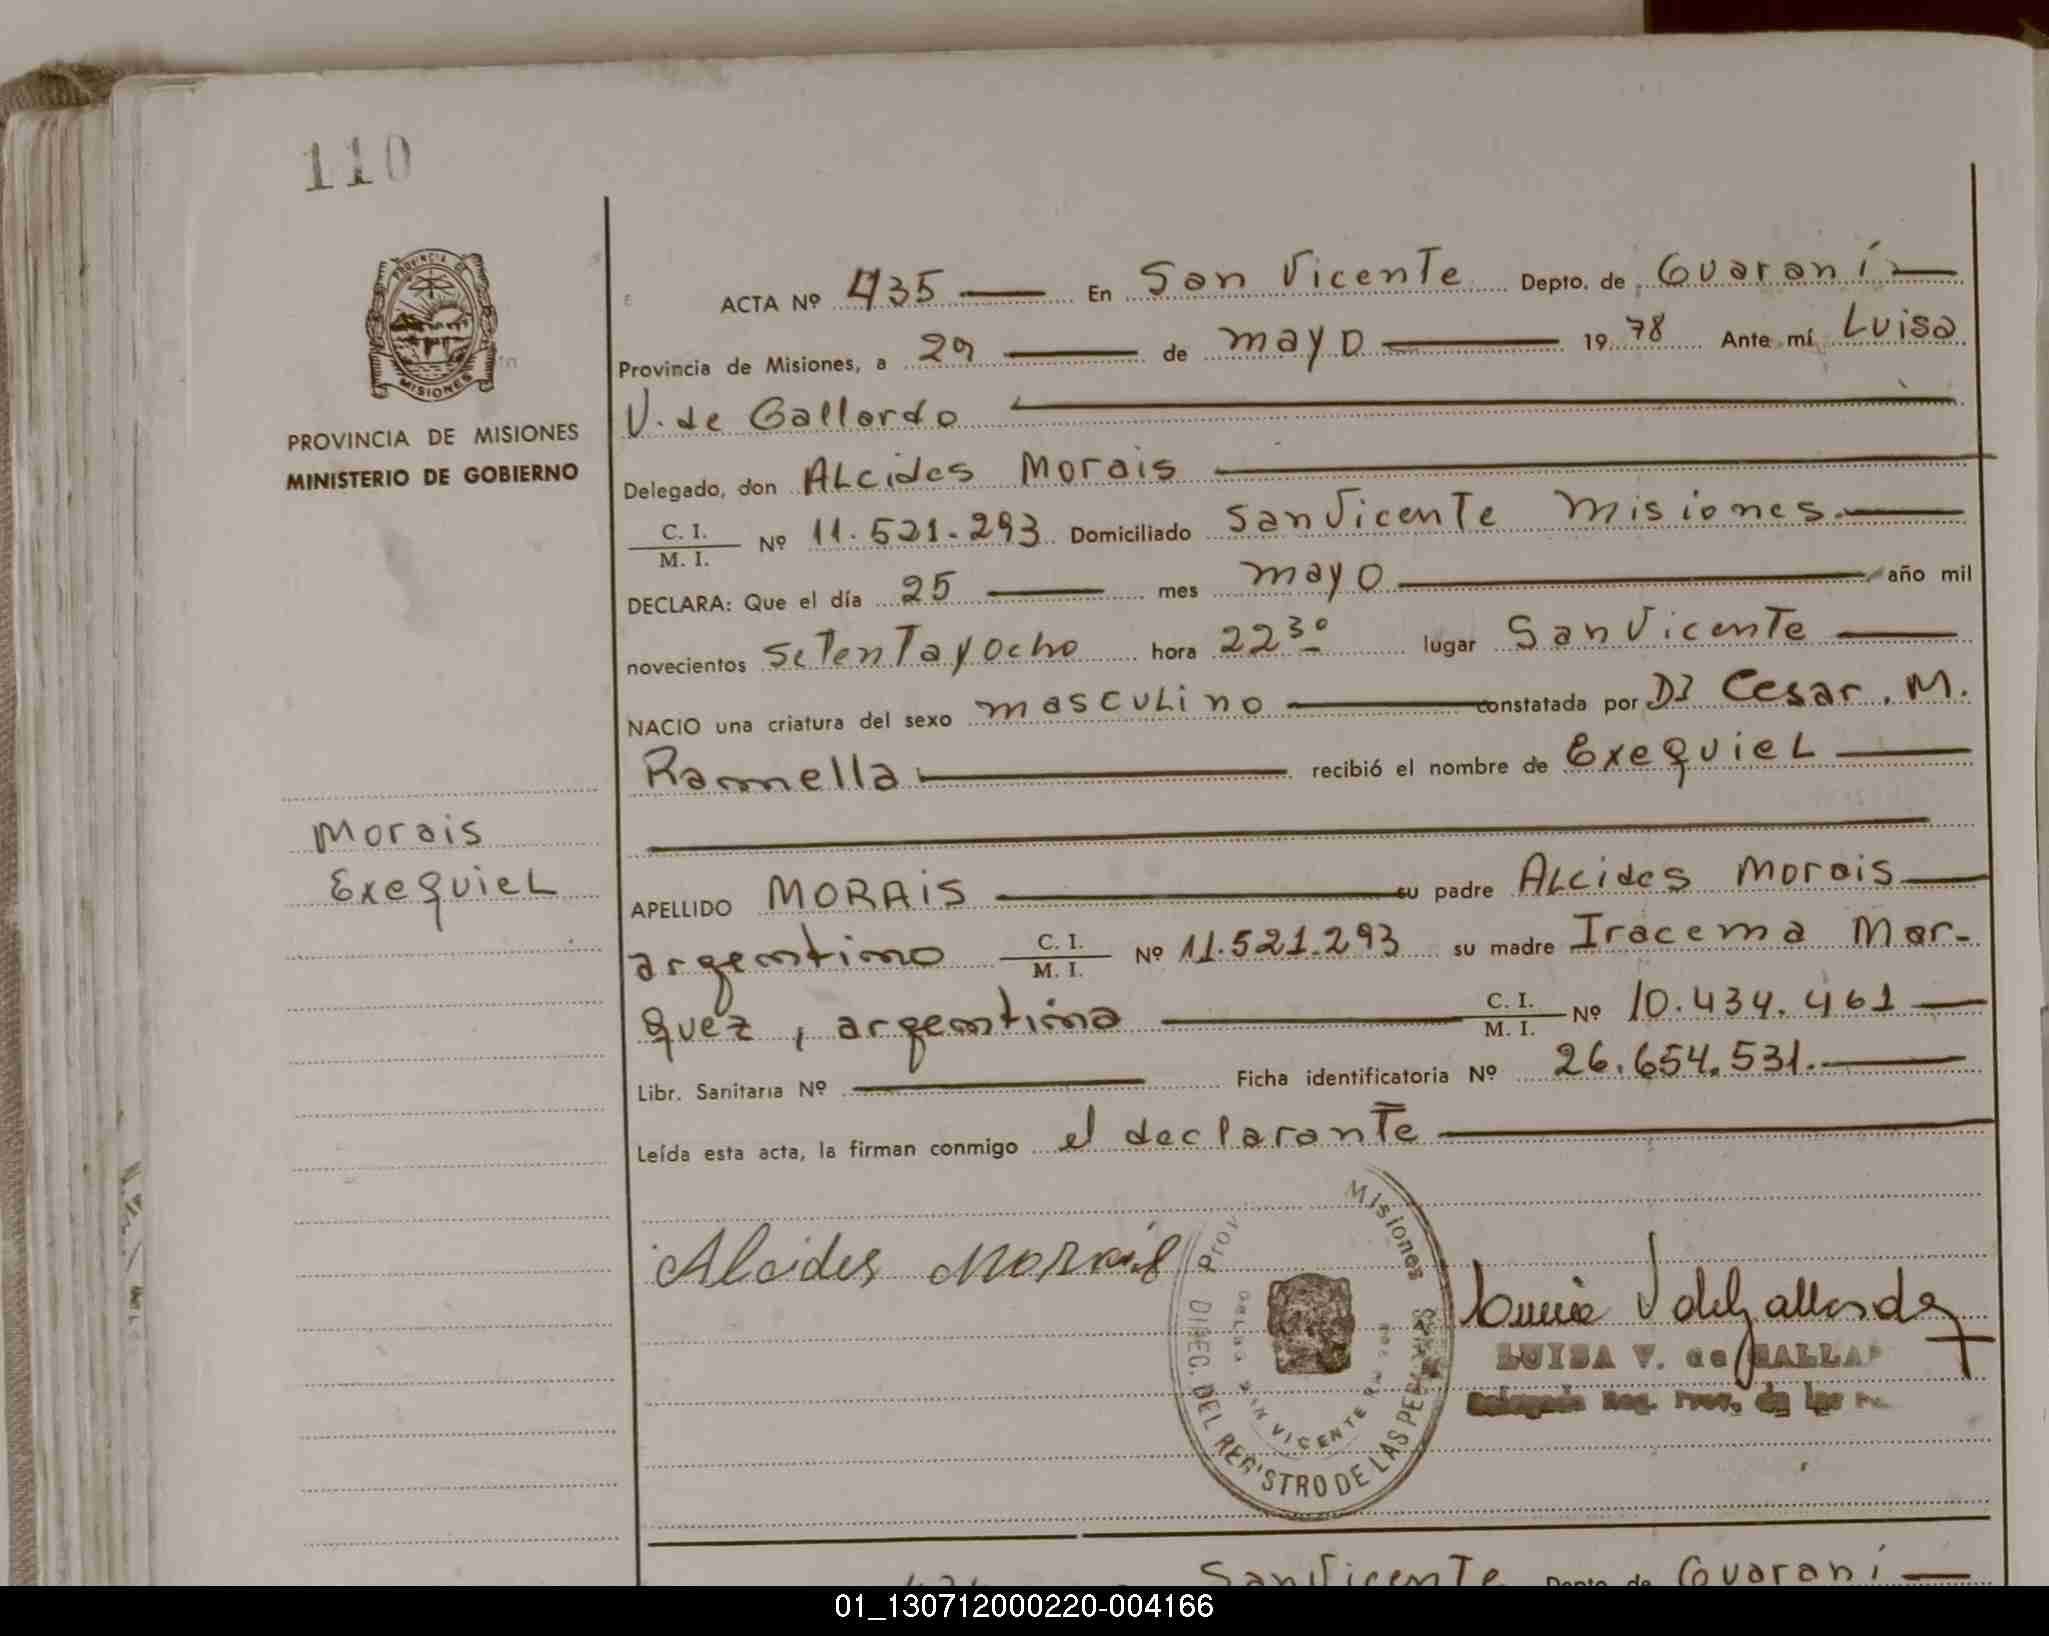 110
PROVINCIA DE
MISIONES
PROVINCIA DE MISIONES
MINISTERIO DE GOBIERNO
Morais
Exequiel
ACTA Nº 435 En San Vicente Depto. de Guaraní
Provincia de Misiones, a 29 de mayo 1978 Ante mí Luisa
V. de Gallardo
Delegado, don Alcides Morais
C. I.
M. I. Nº 11.521.293 Domiciliado San Vicente Misiones.
DECLARA: Que el día 25 mes mayo año mil
novecientos setenta y ocho hora 22 30 lugar San Vicente
NACIO una criatura del sexo masculino constatada por Dr Cesar. M.
Ramella recibió el nombre de Exequiel
APELLIDO MORAIS su padre Alcides Morais
argentino C. I.
M. I. Nº 11.521.293 su madre Iracema Mar-
quez, argentina C. I.
M. I. Nº 10.434.461
Libr. Sanitaria Nº Ficha identificatoria Nº 26.654.531.
Leída esta acta, la firman conmigo el declarante
Alcides Morais
Prov Misiones
DIREC. DEL REGISTRO DE LAS PERSONAS
SAN VICENTE
Luisa V de Gallardo
LUISA V. de GALLAR
Delegada Reg. Prov. de las Pe
San Vicente Depto. de Guaraní
01_130712000220-004166